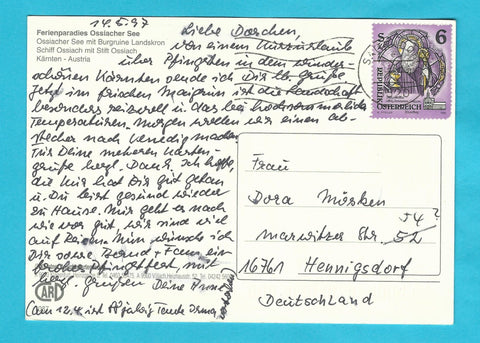 14.5.97
Ferienparadies Ossiacher See
Ossiacher See mit Burgruine Landskron
Schiff Ossiach mit Stift Ossiach
Kärnten - Austria
Liebe Dorchen,
von einem Kurzurlaub
über Pfingsten in dem wunder-
schönen Kärnten sende ich Dir lb. Grüße
Jetzt im frischen Maigrün ist die Landschaft
besonders reizvoll u. das bei hochsommerlichen
Temperaturen. Morgen wollen wir einen Ab-
stecher nach Venedig machen
Für Deine Karten-
grüße herzl. Dank. Ich hoffe,
die Kur hat Dir gut getan
u. Du bist gesund wieder
zu Hause. Mir geht es nach
wie vor gut, wir sind viel
auf Reisen. Nun wünsche ich
Dir sowie Bernd + Fam. ein
frohes Pfingstfest mit
herzl. Grüßen Deine
(am 12.4. ist Tante Irma
Frau
Dora Mörsken
Marwitzer Str. 52
54?
16761 Hennigsdorf
Deutschland
6
REPUBLIK
ÖSTERREICH
CARD